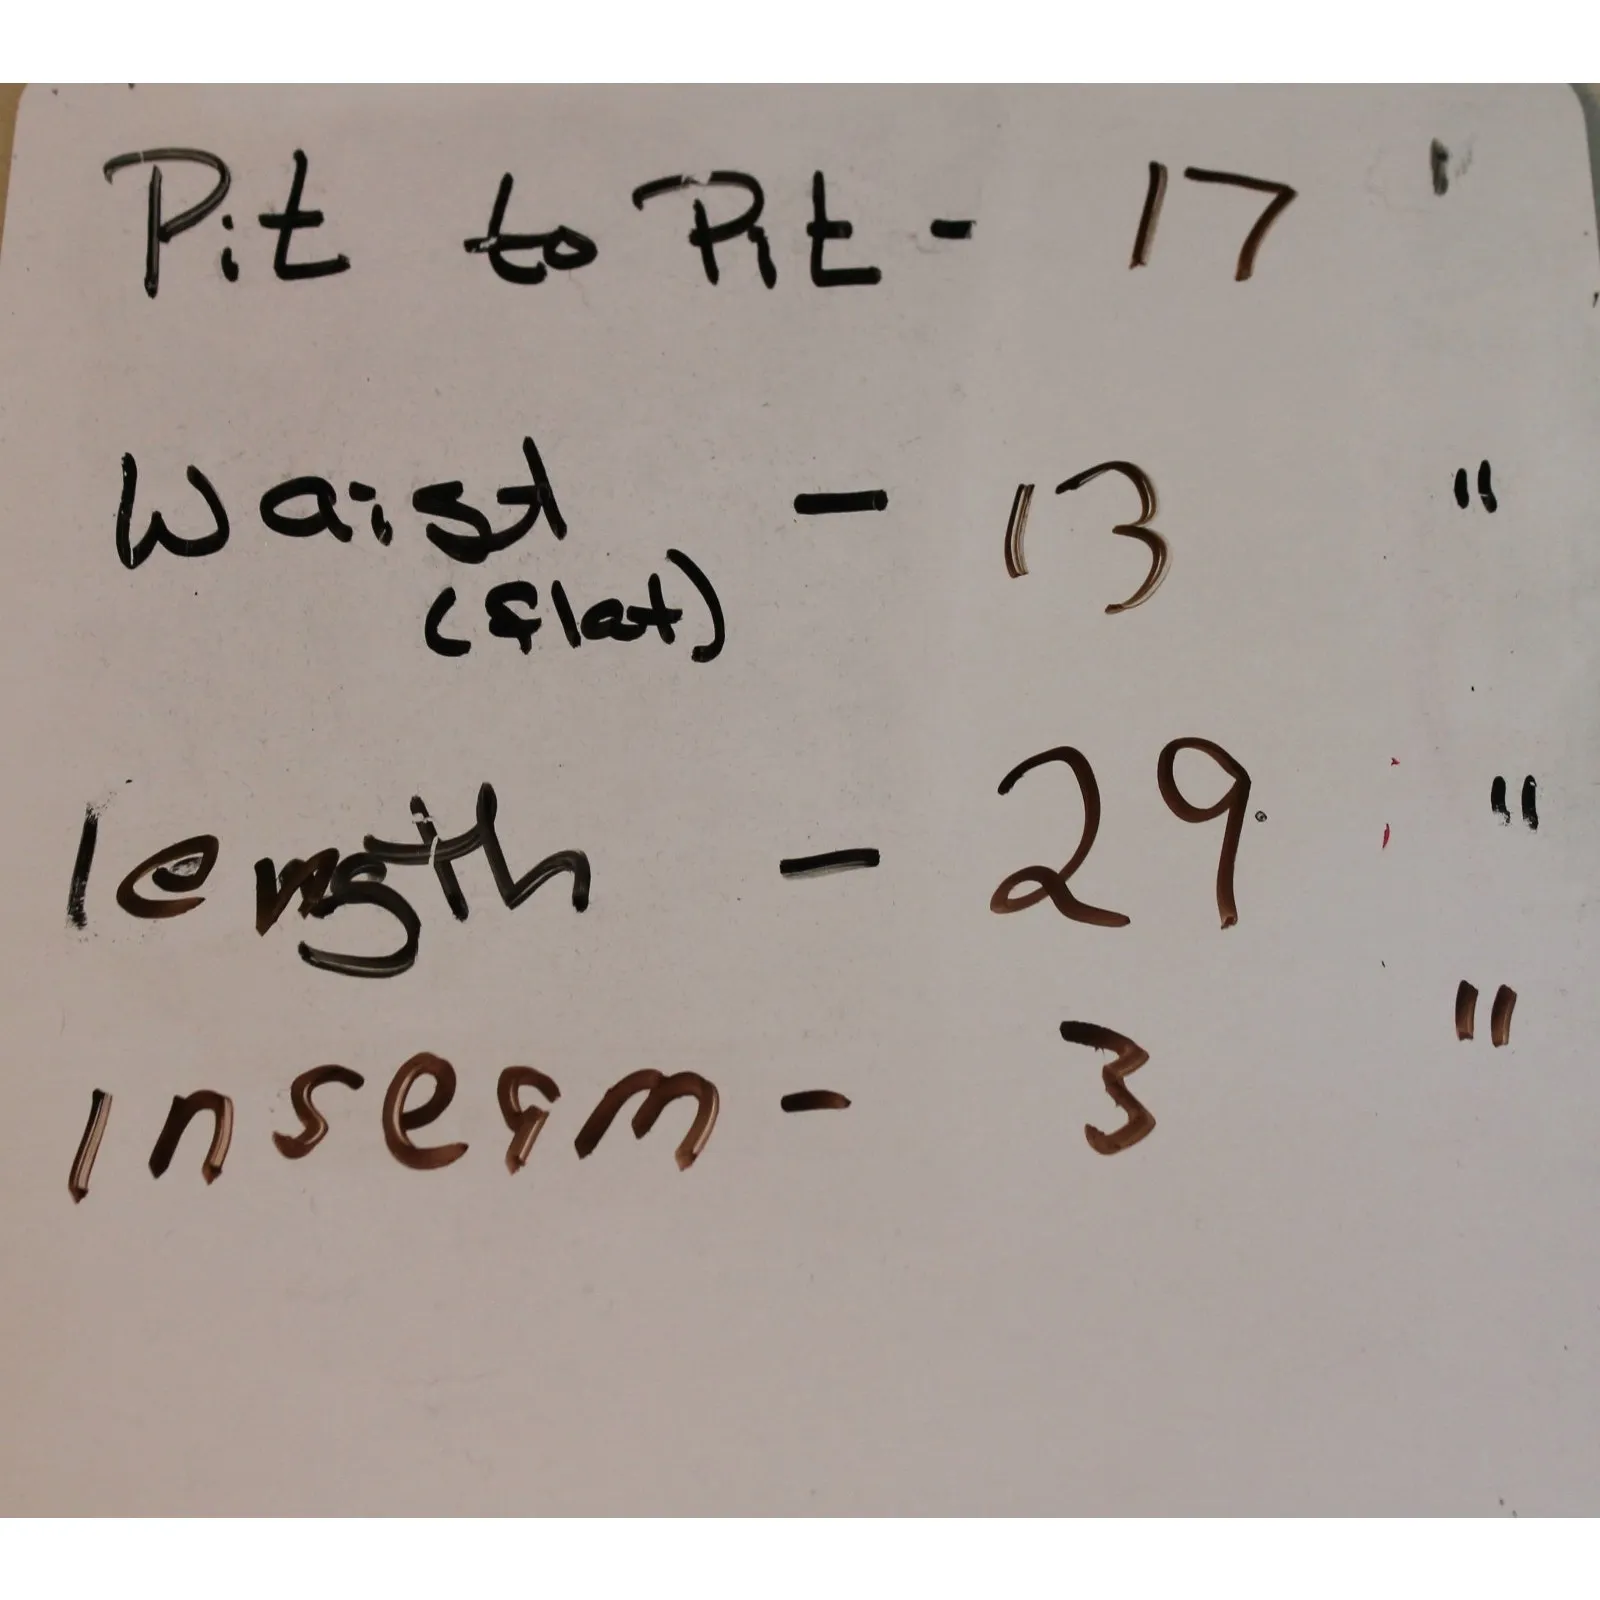 Pit to Pit - 17 "
Waist - 13 "
(flat)
length - 29 "
Inseam - 3 "